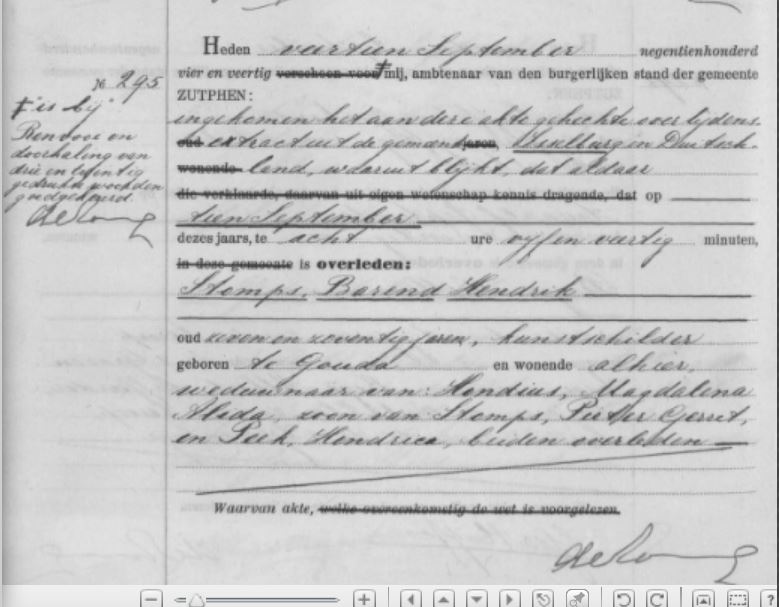 Heden veertien September negentienhonderd
vier en veertig verscheen voor mij, ambtenaar van den burgerlijken stand der gemeente
ZUTPHEN:
№ 295
is bij
ingekomen het aan deze akte gehechte overlijdens
oud extract uit de gemeente jaren, IJsselburg in Duitsch-
wonende land, waaruit blijkt, dat aldaar
die verklaarde, daarvan uit eigen wetenschap kennis dragende, dat op
tien September
dezes jaars, te acht ure vijf en veertig minuten,
in deze gemeente is overleden:
Stomps, Barend Hendrik
oud zeven en zeventig jaren, kunstschilder
geboren te Gouda en wonende alhier,
weduwnaar van: Hondius, Magdalena
Alida, zoon van Stomps, Pieter Gerrit,
en Peek, Hendrica, beiden overleden
Renvooi en
doorhaling van
drie en twintig
gedrukte woorden
goedgekeurd.
Waarvan akte, welke overeenkomstig de wet is voorgelezen.